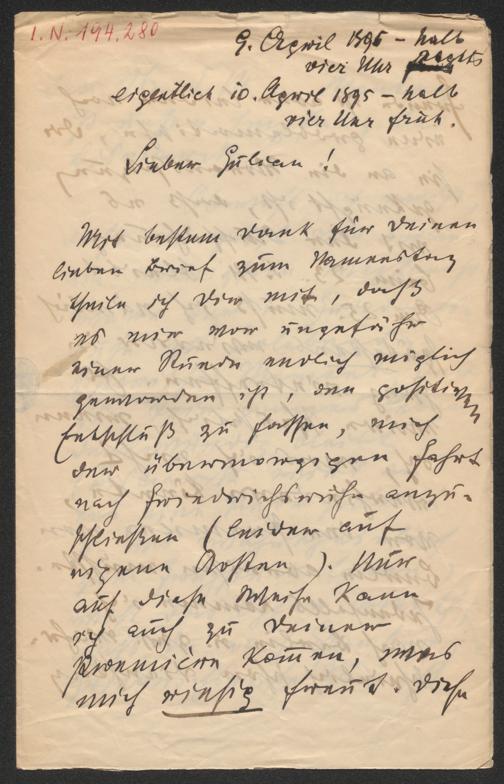 I. N. 194.280
9. April 1895 – halb
vier Uhr Nachts
eigentlich 10. April 1895 – halb
vier Uhr früh.
Lieber Julian!
Mit bestem Dank für Deinen
lieben Brief zum Namenstag
theile ich Dir mit, daß
es mir vor ungefähr
einer Stunde endlich möglich
geworden ist, den positiven
Entschluß zu fassen, mich
der übermorgigen Fahrt
nach Friedrichsruhe anzu-
schließen (leider auf
eigene Kosten). Nur
auf diese Weise kann
ich auch zu Deiner
Première kommen, was
mich riesig freut. Diese